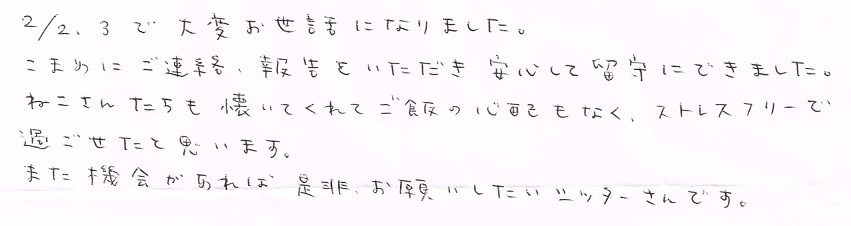 2/2、3で大変お世話になりました。
こまめにご連絡、報告をいただき安心して留守にできました。
ねこさんたちも懐いてくれてご飯の心配もなく、ストレスフリーで
過ごせたと思います。
また機会があれば是非、お願いしたいシッターさんです。